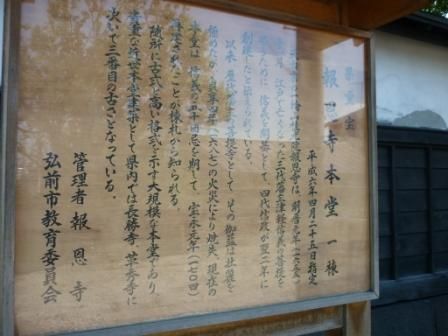 県重宝
報恩寺本堂 一棟
平成六年四月二十五日指定
報恩寺は、明暦元年(一六五五)
江戸で亡くなった三代藩主津軽信義の菩提を
ために、信義を開基として、四代信政が翌二年に
創建したと伝えられている。
以来、歴代藩主の菩提寺として、その伽藍は壮麗を
極めたが、貞享四年(一六八七)の火災により焼失、現在の
本堂は、信義の五十回忌を期して、宝永元年(一七〇四)
再建されたことが棟札から知られる。
随所に古式と高い格式を示す大規模な本堂であり
貴重な近世本堂建築として県内では長勝寺、革秀寺に
次いで三番目の古さとなっている。
管理者 報恩寺
弘前市教育委員会